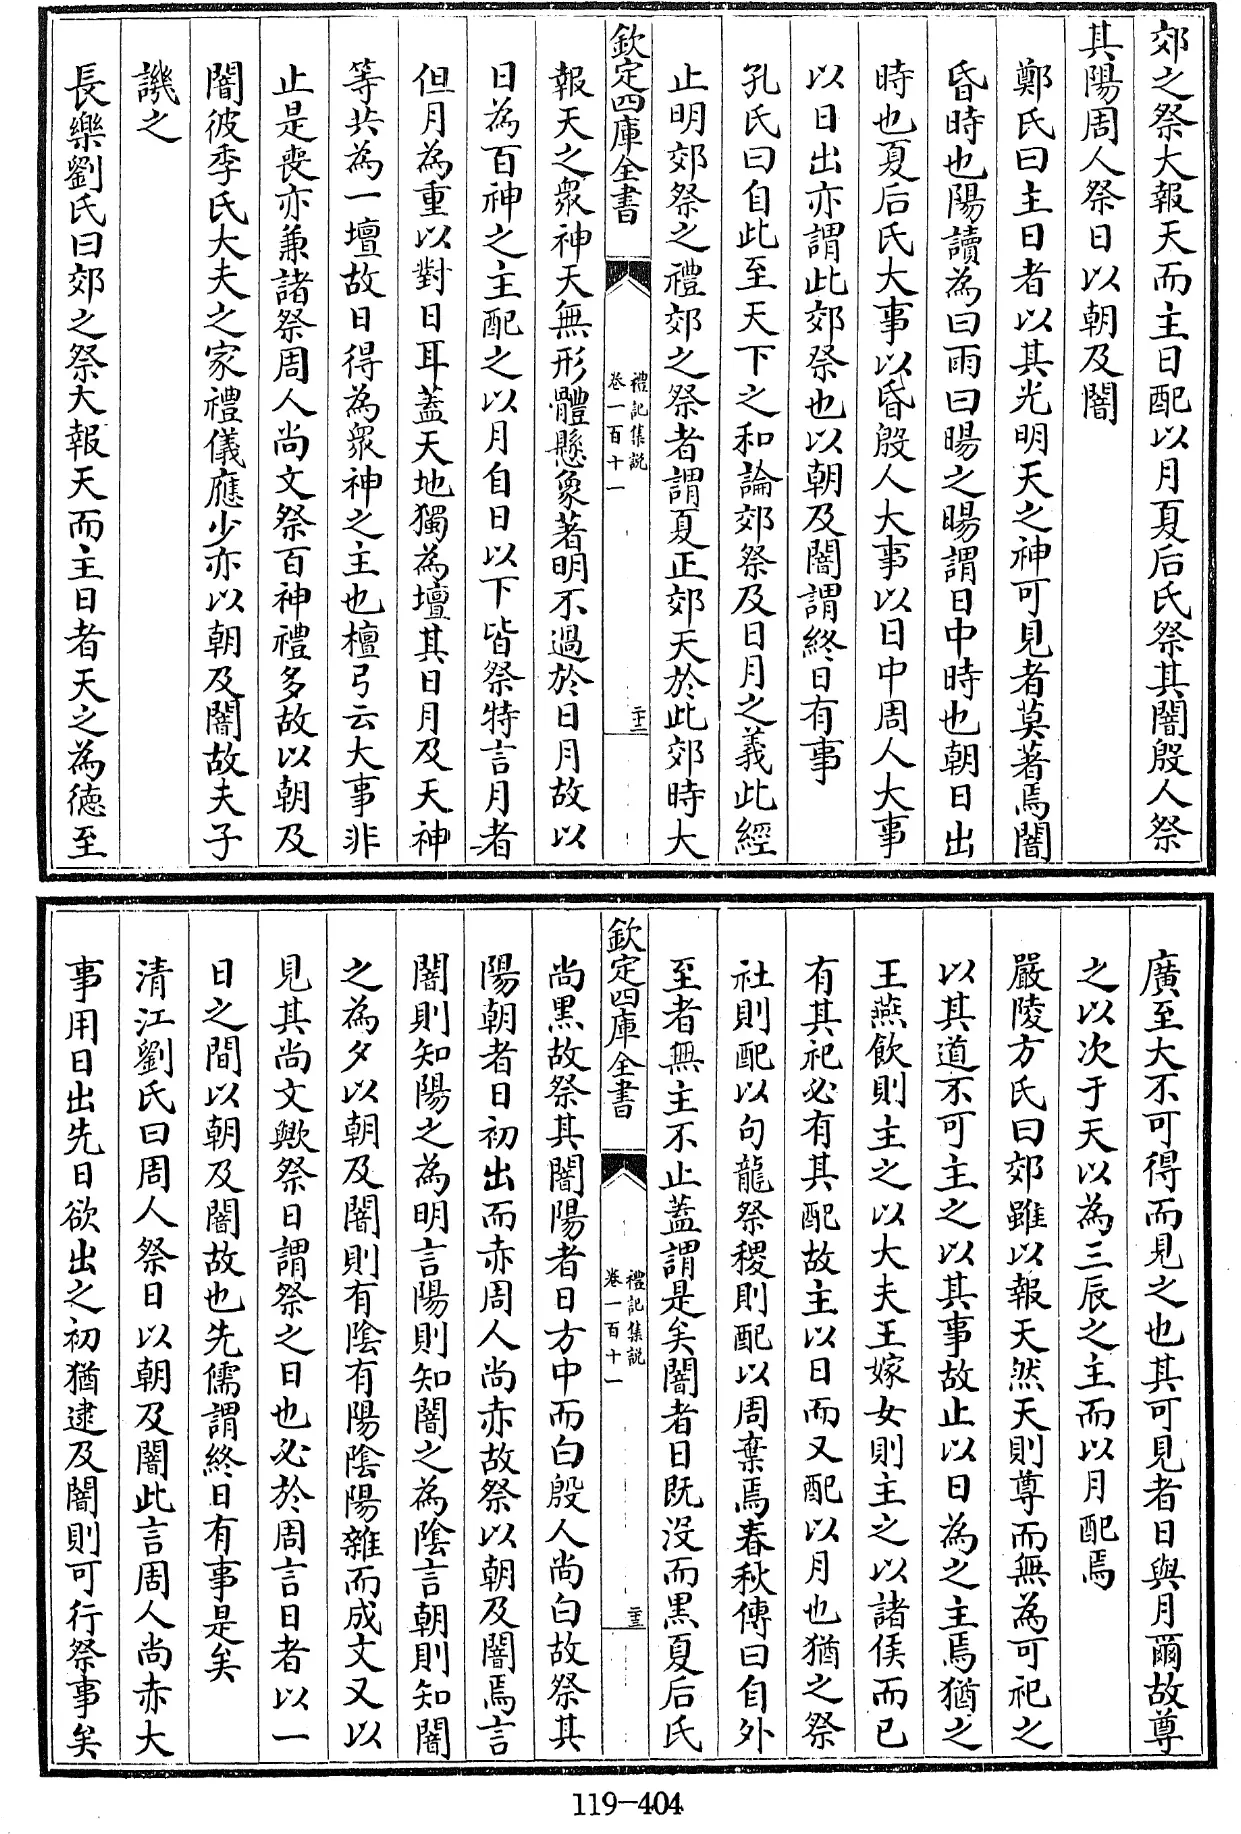 郊之祭大報天而主日配以月夏后氏祭其闇殷人祭
其陽周人祭日以朝及闇
鄭氏曰主日者以其光明天之神可見者莫著焉闇
昏時也陽讀為曰雨曰暘之暘謂日中時也朝日出
時也夏后氏大事以昏殷人大事以日中周人大事
以日出亦謂此郊祭也以朝及闇謂終日有事
孔氏曰自此至天下之和論郊祭及日月之義此經
止明郊祭之禮郊之祭者謂夏正郊天於此郊時大
欽定四庫全書
禮記集說
卷一百十一
二十二
報天之衆神天無形體懸象著明不過於日月故以
日為百神之主配之以月自日以下皆祭特言月者
但月為重以對日耳蓋天地獨為壇其日月及天神
等共為一壇故日得為衆神之主也檀弓云大事非
止是喪亦兼諸祭周人尚文祭百神禮多故以朝及
闇彼季氏大夫之家禮儀應少亦以朝及闇故夫子
譏之
長樂劉氏曰郊之祭大報天而主日者天之為徳至
廣至大不可得而見之也其可見者日與月爾故尊
之以次于天以為三辰之主而以月配焉
嚴陵方氏曰郊雖以報天然天則尊而無為可祀之
以其道不可主之以其事故止以日為之主焉猶之
王燕飲則主之以大夫王嫁女則主之以諸侯而已
有其祀必有其配故主以日而又配以月也猶之祭
社則配以句龍祭稷則配以周棄焉春秋傳曰自外
至者無主不止蓋謂是矣闇者日既沒而黒夏后氏
欽定四庫全書
禮記集說
卷一百十一
二十三
尚黒故祭其闇陽者日方中而白殷人尚白故祭其
陽朝者日初出而赤周人尚赤故祭以朝及闇焉言
闇則知陽之為明言陽則知闇之為陰言朝則知闇
之為夕以朝及闇則有陰有陽陰陽雜而成文又以
見其尚文歟祭日謂祭之日也必於周言日者以一
日之間以朝及闇故也先儒謂終日有事是矣
清江劉氏曰周人祭日以朝及闇此言周人尚赤大
事用日出先日欲出之初猶逮及闇則可行祭事矣
119-404